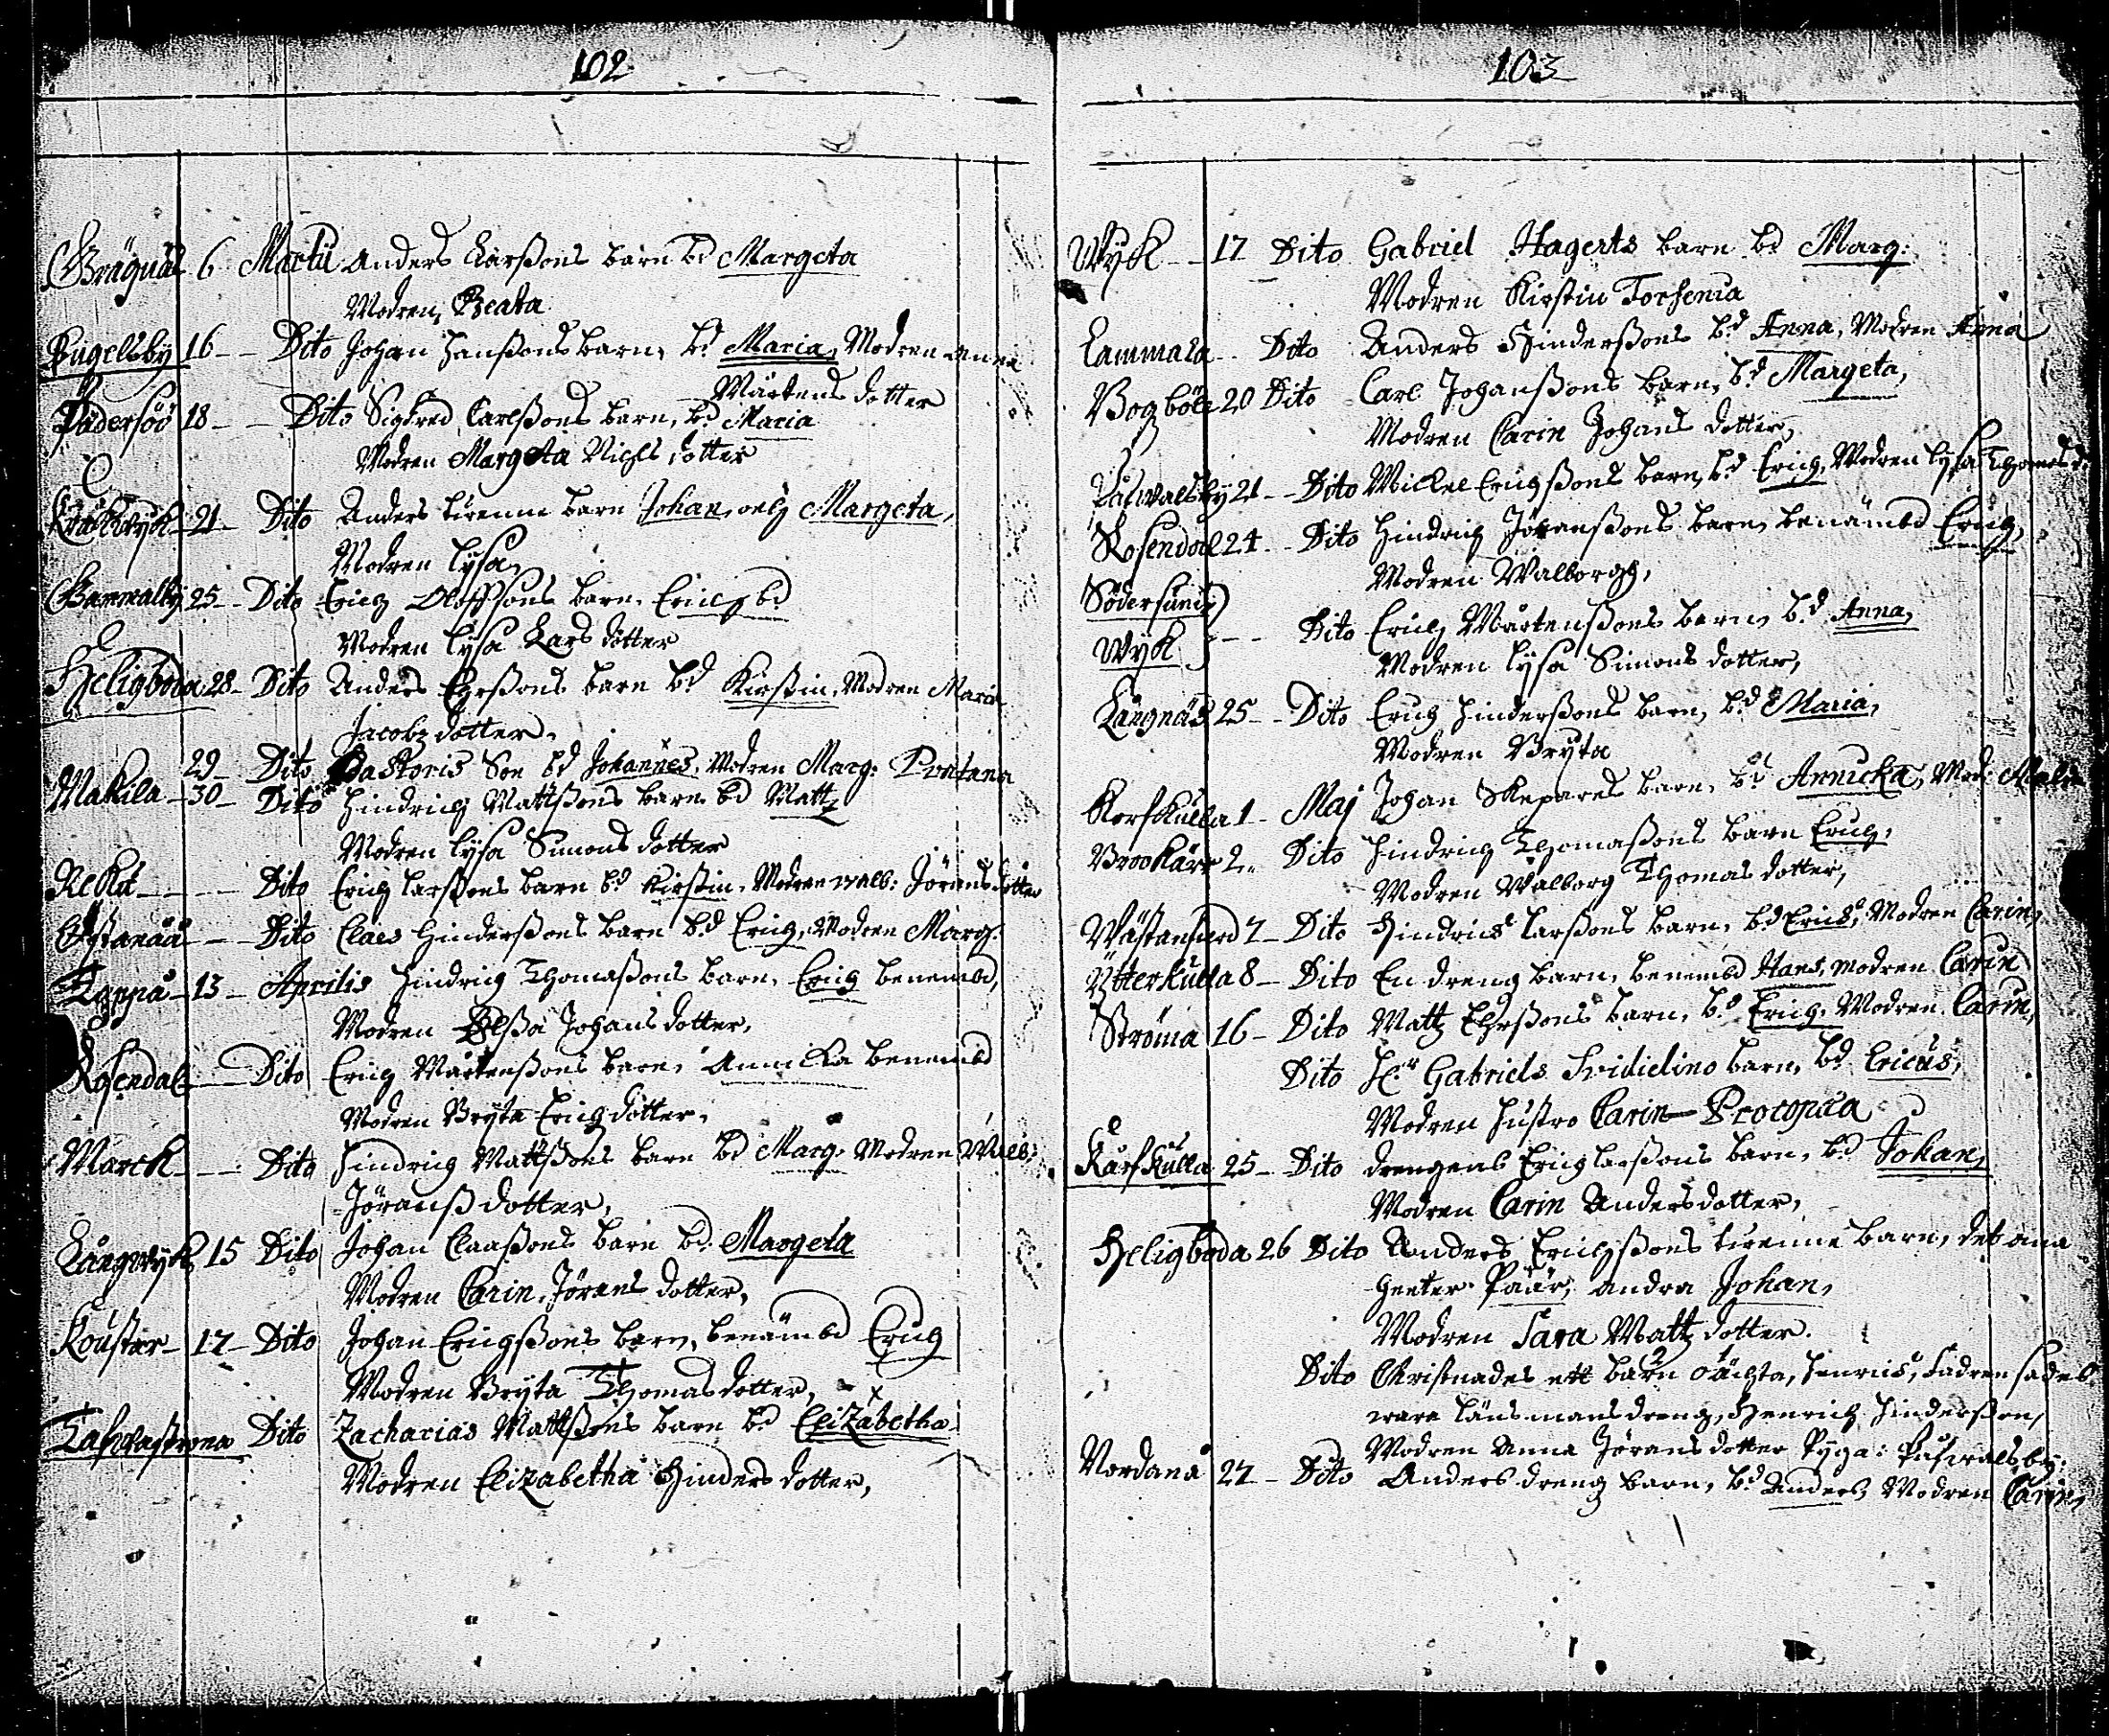 102
Grägnäs 6 Martii Anders Larßons barn bd Margeta
Modren, Beata
Pugelsby 16 - - Dito Johan Hanßons barn, bd Maria, Modren Anna
Mårtens dotter
Pådersöö 18 - - Dito Sigfred Carlßons barn, bd Maria
Modren Margeta Nichls dotter
21 - Dito Anders twenne barn Johan, och Margeta,
Modren Lysa,
Gammalby 25 - - Dito Erich Oloffsons barn. Erich bd
Modren Lysa Lars dotter
Heligboda 28 - Dito Anders Ehrßons barn bd Kirstin, Modren Maria
Jacobz dotter.
29 - Dito Pastoris Son bd Johannes, Modren Marg: Pontana
Makila - 30 - Dito Hindrich Mattßons barn bd Mattz
Modren Lysa Simons dotter
Rekú - - - - Dito Erich Larßons barn bd Kirstin, Modren Walb: Jörans dotter
Östanåå - - Dito Claes Hinderßons barn bd Erich, Modren Marg.
Tappå - 13 - Aprilis Hindrich Thomaßons barn, Erich benembd,
Modren Elßa Johans dotter,
Rosendal - - Dito Erich Mårtenßons barn, Annicka benembd
Modren Bryta Erichz dotter,
Marck - - - Dito Hindrich Mattßons barn bd Marg: Modren Walb:
Jöranß dotter,
Långwyk 15 Dito Johan Claaßons barn bd. Margeta
Modren Carin Jörans dotter,
Koustar - 17 - Dito Johan Erichßons barn, benämbd Erich
Modren Bryta Thomas dotter,
Dito Zacharias Mattßons barn bd Elizabetha
Modren Elizabetha Hinders dotter,
103
Wyk - - 17 Dito Gabriel Hagerts barn bd Marg:
Modren Kirstin Torsenia
Lammala - - Dito Anders Hinderßons bd Anna, Modren Anna
Bogböle 20 Dito Carl Johanßons barn, bd Margeta,
Modren Carin Johans dotter,
Påwalsby 21 - - Dito Mickel Erichßons barn, bd Erich, Modren Lysa Thomas d.
Rosendal 24 - - Dito Hindrich Jöranßons barn, benämbd Erich,
Modren Walborgh,
Södersundz
Wyk - - - Dito Erich Mårtenßons barn, bd Anna,
Modren Lysa Simons dotter,
Långnäs 25 - - Dito Erich Hinderßons barn, bd Maria,
Modren Bryta
Korskulla 1 - Maj Johan Skepares barn, bd Annicka, Mod: Malin
Brookärr 2 - Dito Hindrich Thomaßons barn Erich,
Modren Walborg Thomas dotter,
Wästanfierd 7 - Dito Hindrics Larßons barn, bd Erics, Modren Carin,
Ytterkulla 8 - Dito En dreng barn, benembd Hans, modren Carin
Ströma 16 - Dito Mattz Ehrßons barn, bd Erich, Modren Carin,
Dito Hr Gabriels barn, bd Ericus,
Modren Hustro Carin Procopæa
Karfkulla 25 - Dito drengens Erich Larßons barn, bd Johan,
Modren Carin Andersdotter,
Heligboda 26 Dito Anders Erichßons twenne barn, det ena
heeter Påår, andra Johan,
Modren Sara Mattz dotter.
Dito Christnades ett barn oächta, Henrics, Fadren sades
wara länsmansdreng, Henrich Hinderßon,
Modren Anna Jörans dotter Pyga: Påwalsby.
Nordanå 27 - Dito Anders dreng barn, bd Anders Modren Carin,